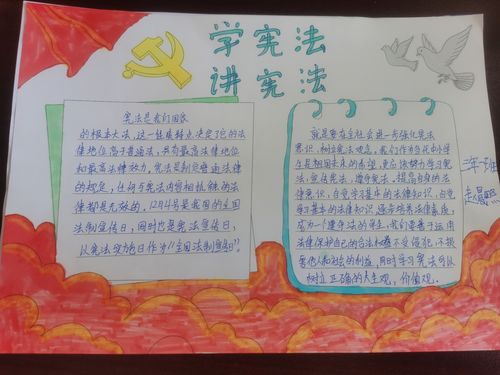 学宪法
讲宪法
宪法是我们国家
的根本大法，这一特点决定了它的法
律地位高于普通法，具有最高法律地位
和最高法律效力。宪法是制定普通法律
的规定，任何与宪法内容相抵触的法
律都是无效的。12月4号是我国的全国
法制宣传日，同时也是宪法宣传日，
以宪法实施日作为"全国法制宣传日"。
就是要在全社会进一步强化宪法
意识，树立宪法观念。我们作为当代中小学
生是祖国未来的希望，更应该努力学习宪
法，宣传宪法，遵守宪法。提高自身的法
律意识，自觉学习基本的法律知识，自觉
学习基本的法律知识，逐步培养法律素质，
成为一个遵守法的学生。我们要善于运用
法律保护自己的合法权益不受侵犯，不损
害他人和社会的利益，同时学习宪法可以
树立正确的人生观，价值观。
班
赵